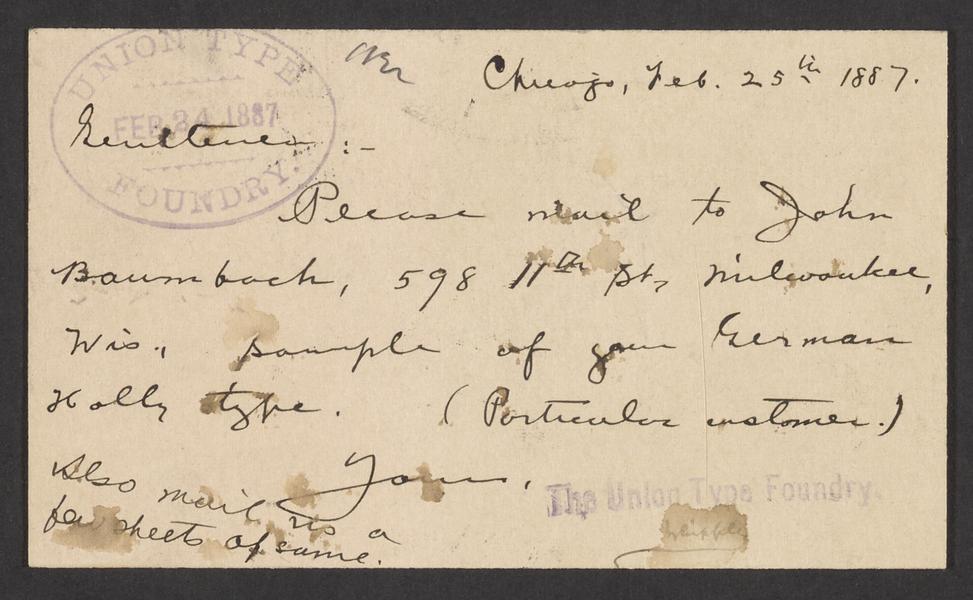 UNION TYPE
FEB 24 1887
FOUNDRY.
Chicago, Feb. 25th 1887.
Gentlemen :-
Please mail to John
Baumbach, 598 11th St., Milwaukee,
Wis., sample of your German
Holly type. (Particular customer.)
Yours,
Also mail us a
few sheets of same.
The Union Type Foundry.